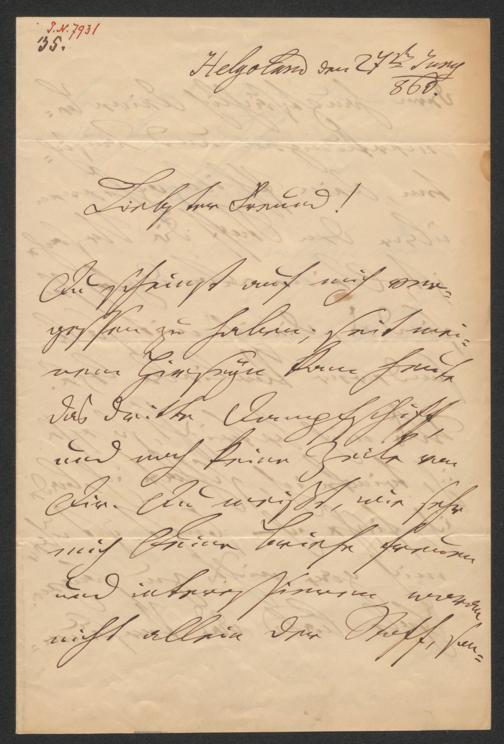 I.N. 7931
35.
Helgoland den 27ten Juny
860.
Liebster Freund!
Du scheinst auf mich ver-
gessen zu haben; seit mei-
nem Hierseyn kam heute
das dritte Dampfschiff,
und noch keine Zeile von
Dir. Du weißt, wie sehr
mich Deine Briefe freuen
und interessieren, wozu
nicht allein der Stoff, son-